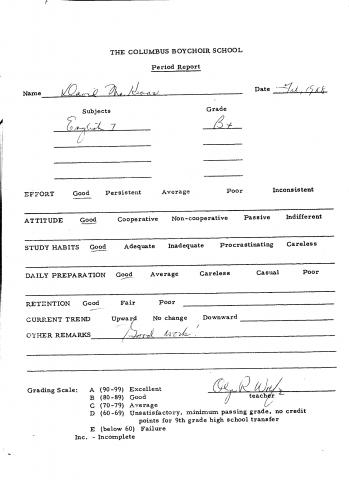 THE COLUMBUS BOYCHOIR SCHOOL
Period Report
Name David Date Feb, 1968
Subjects Grade
English 7 B+
EFFORT Good Persistent Average Poor Inconsistent
ATTITUDE Good Cooperative Non-cooperative Passive Indifferent
STUDY HABITS Good Adequate Inadequate Procrastinating Careless
DAILY PREPARATION Good Average Careless Casual Poor
RETENTION Good Fair Poor
CURRENT TREND Upward No change Downward
OTHER REMARKS Good work!
Grading Scale: A (90-99) Excellent
B (80-89) Good teacher
C (70-79) Average
D (60-69) Unsatisfactory, minimum passing grade, no credit
points for 9th grade high school transfer
E (below 60) Failure
Inc. - Incomplete